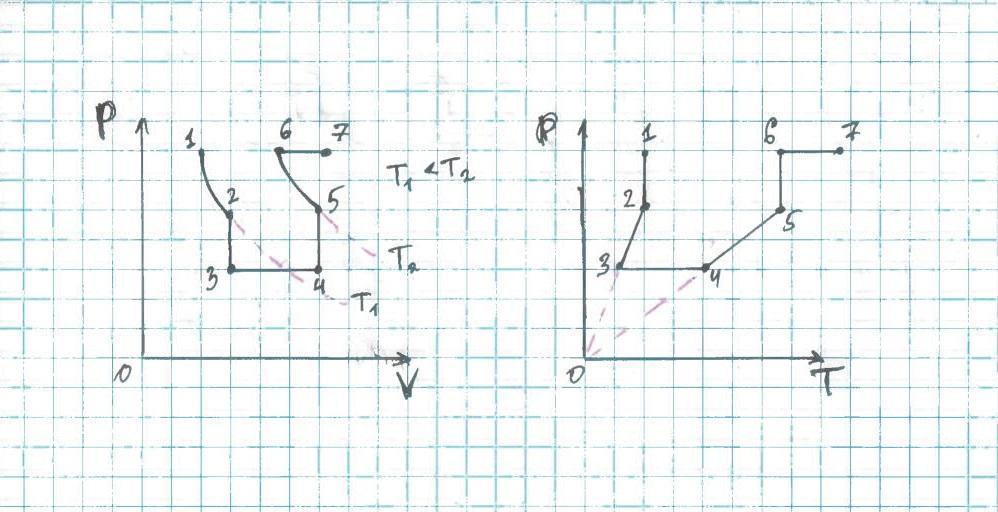 P
1
6 7
T₁ < T₂
2
5
3
4
T₂
T₁
0
V
P
1
6
7
2
5
3
4
0
T